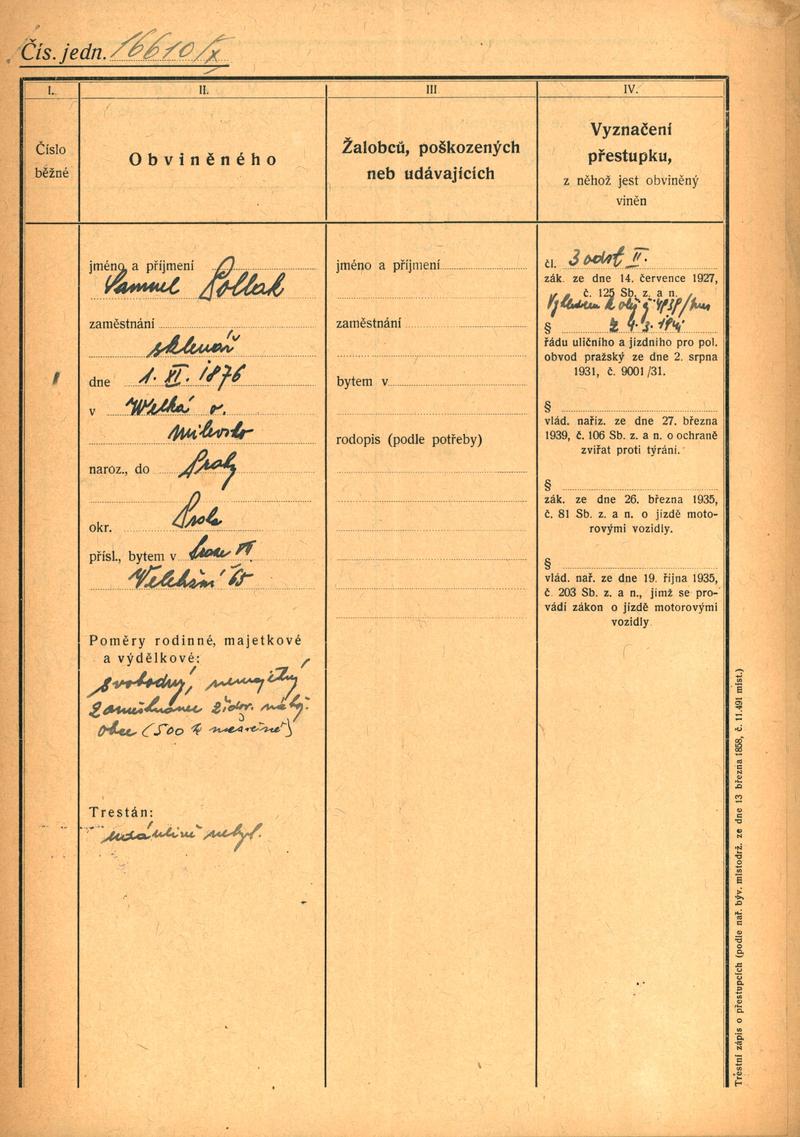 Čís. jedn. 16610/X
I.
II.
III
IV.
Číslo
běžné
Obviněného
Žalobců, poškozených
neb udávajících
Vyznačení
přestupku,
z něhož jest obviněný
viněn
jméno a příjmení
Samuel Pollak
zaměstnání
sklenář
dne 1. XI. 1876
v Welká o.
Milevsko
naroz., do Prahy
okr. Praha
přísl., bytem v Praze VII
65
Poměry rodinné, majetkové
a výdělkové:
svobodný, nemajetný
zaměstnanec židov. nábž.
obce (500 K měsíčně)
Trestán:
údánlivě nebyl.
jméno a příjmení
zaměstnání
bytem v
rodopis (podle potřeby)
čl. 3 odst II.
zák. ze dne 14. července 1927,
č. 125 Sb. z. a n.
§ z 4. 3. 1941
řádu uličního a jízdního pro pol.
obvod pražský ze dne 2. srpna
1931, č. 9001/31.
§
vlád. naříz. ze dne 27. března
1939, č. 106 Sb. z. a n. o ochraně
zvířat proti týrání.
§
zák. ze dne 26. března 1935,
č. 81 Sb. z. a n. o jízdě moto-
rovými vozidly.
§
vlád. nař. ze dne 19. října 1935,
č 203 Sb. z. a n., jímž se pro-
vádí zákon o jízdě motorovými
vozidly
Trestní zápis o přestupcích (podle nař. býv. místodrž. ze dne 13 března 1858, č. 11.491 míst.)